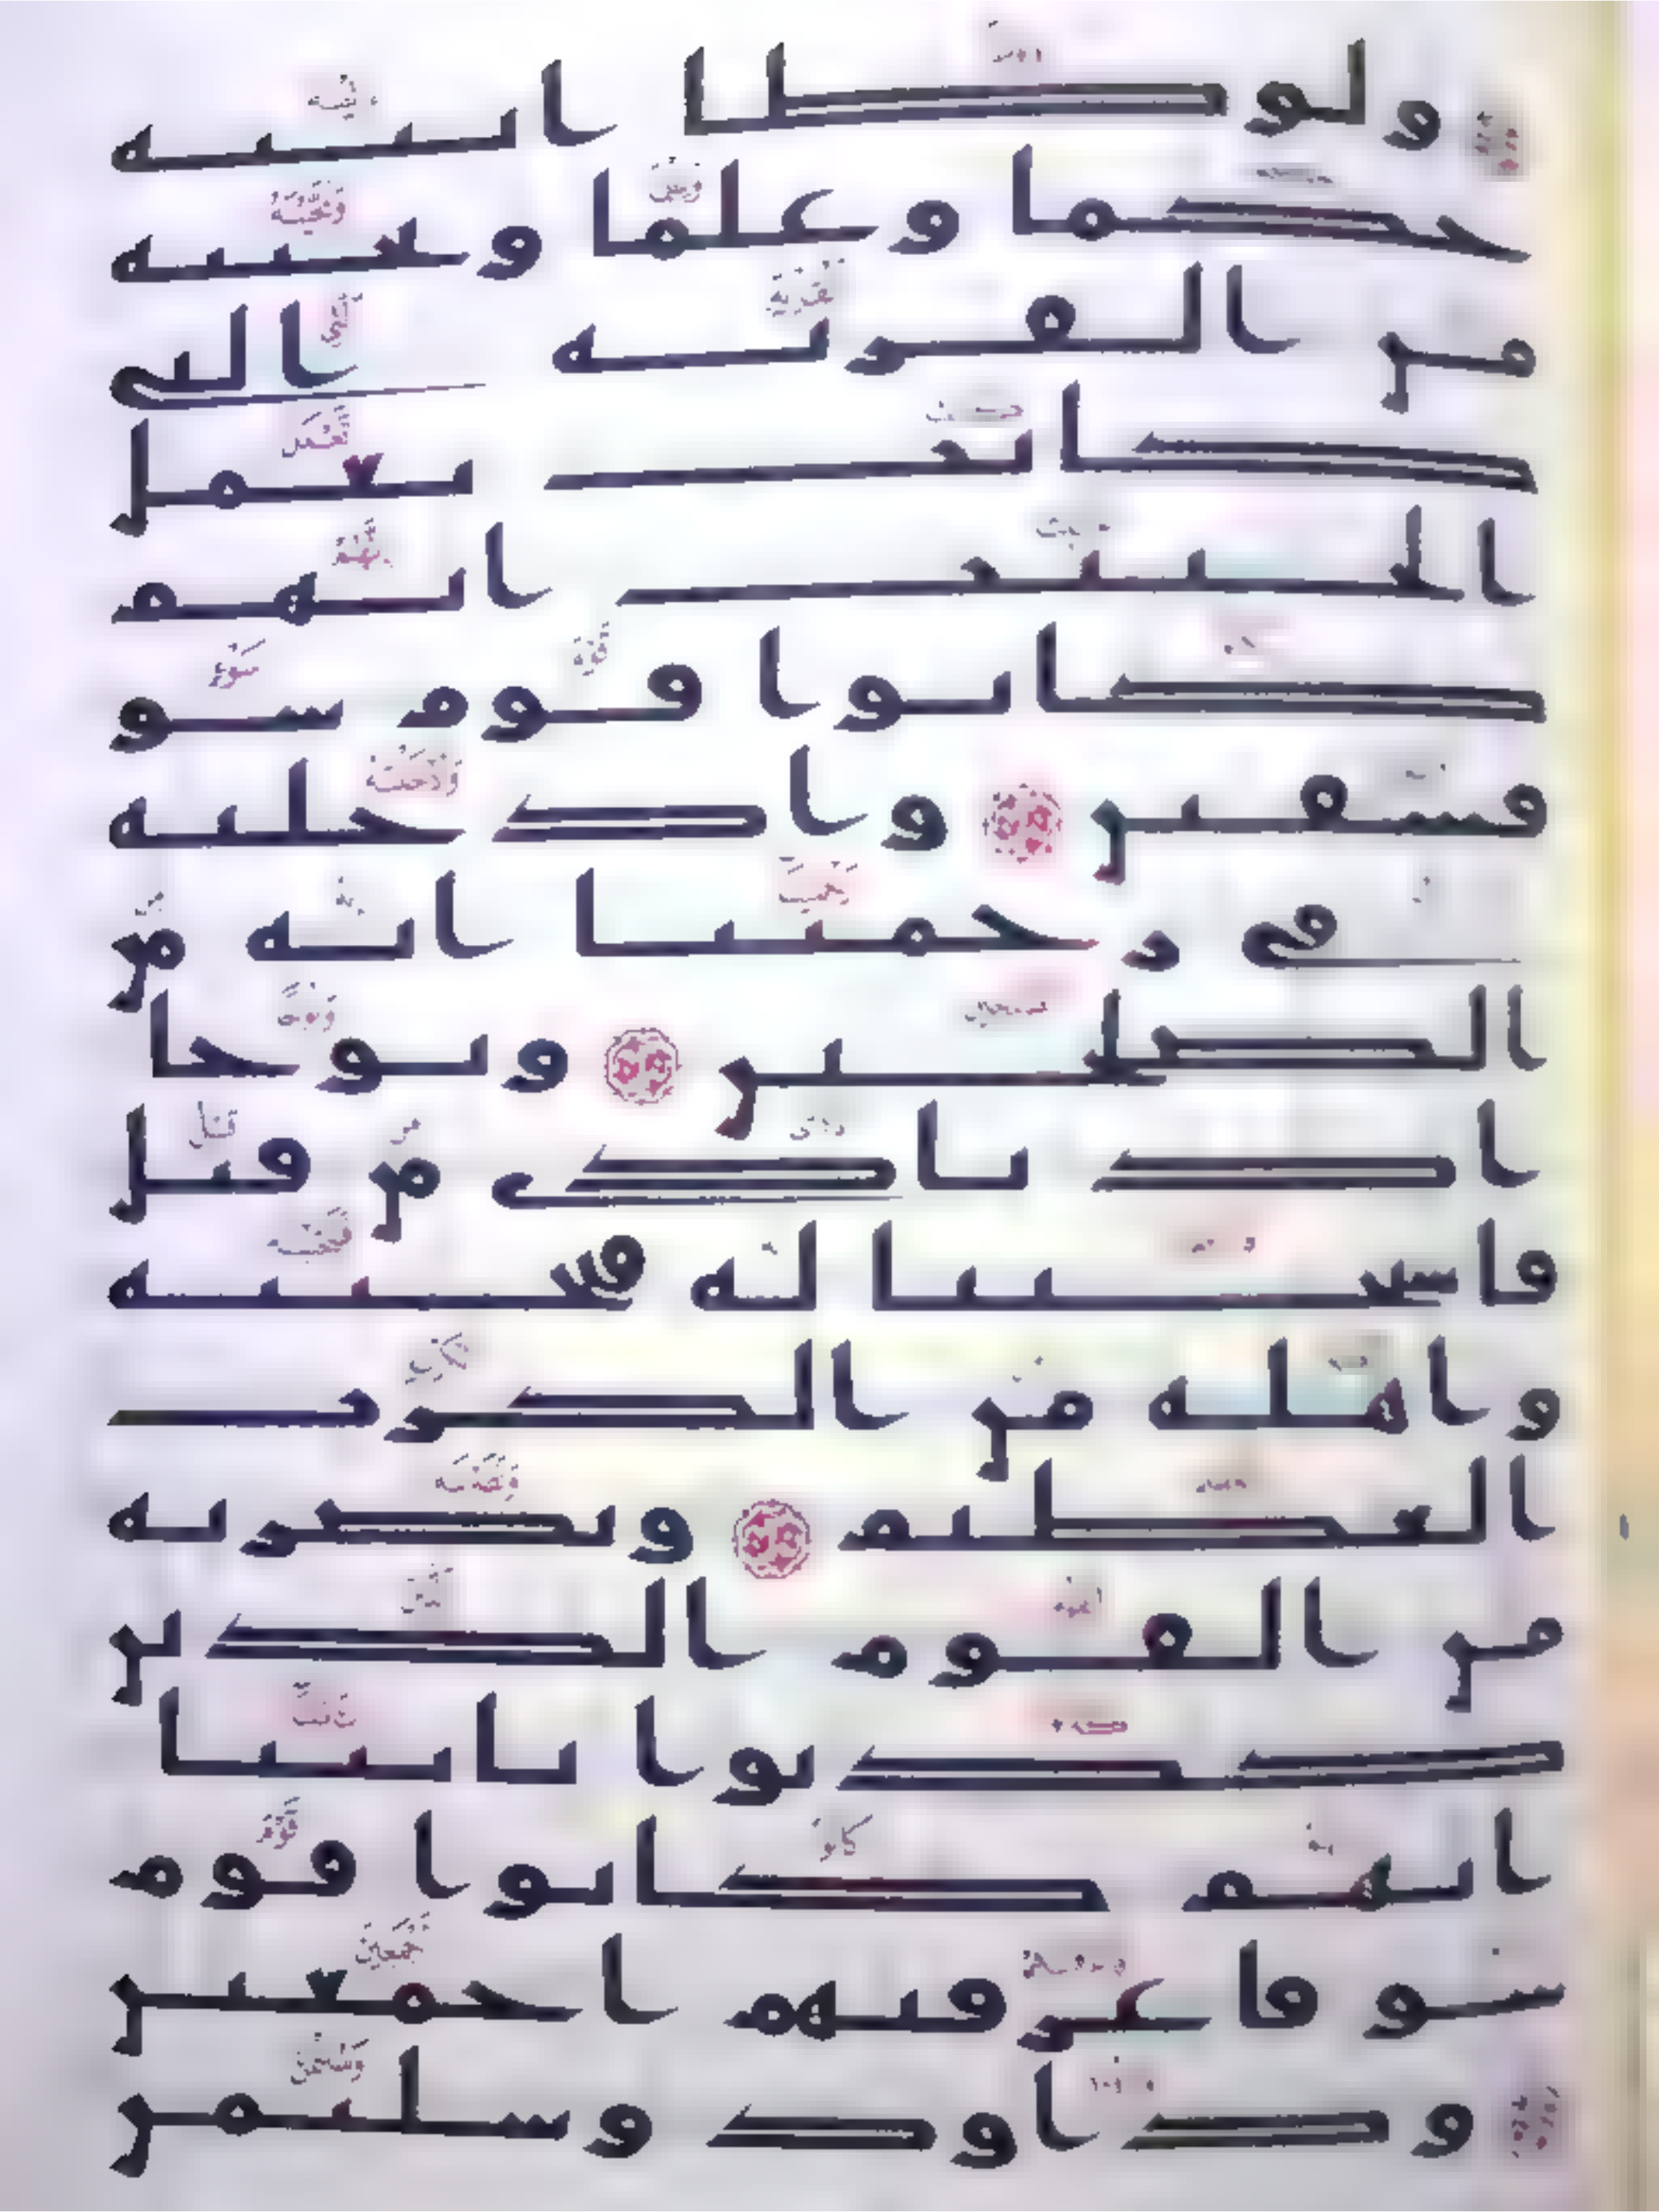 ولوطا اتينه
حكما وعلما ونجينه
من القرية التي
كانت تعمل
الخبيث انهم
كانوا قوم سو
فسقين وادخلنه
في رحمتنا انه من
الصلحين ونوحا
اذ نادي من قبل
فاستجبنا له فنجينه
واهله من الكرب
العظيم ونصرنه
من القوم الذين
كذبوا بايتنا
انهم كانوا قوم
سو فاغرقنهم اجمعين
وداود وسليمن